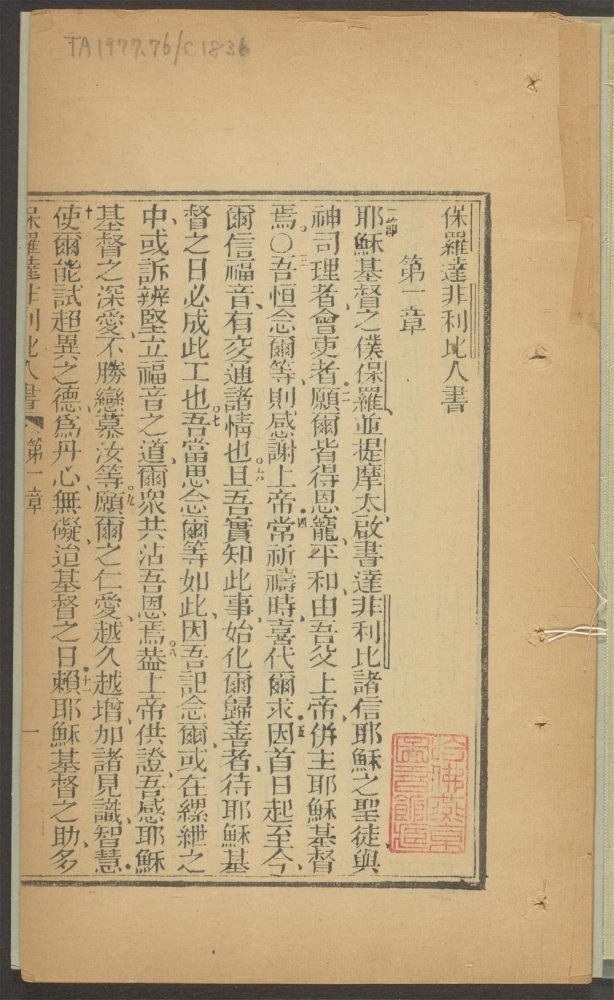 TA 1977.76/C1836
保羅達非利比人書
第一章
一節
耶穌基督之僕保羅並提摩太啟書達非利比諸信耶穌之聖徒與
神司理者會吏者願爾皆得恩寵平和由吾父上帝併主耶穌基督
焉〇吾恒念爾等則感謝上帝常祈禱時喜代爾求因首日起至今
爾信福音有交通諸情也且吾實知此事始化爾歸善者待耶穌基
督之日必成此工也吾當思念爾等如此因吾記念爾或在縲紲之
中或訴辨堅立福音之道爾眾共沾吾恩焉葢上帝供證吾感耶穌
基督之深愛不勝戀慕汝等願爾之仁愛越久越增加諸見識智慧
使爾能試超異之德為丹心無礙迨基督之日賴耶穌基督之助多
保羅達非利比人書 第一章 一
哈佛燕京圖書館